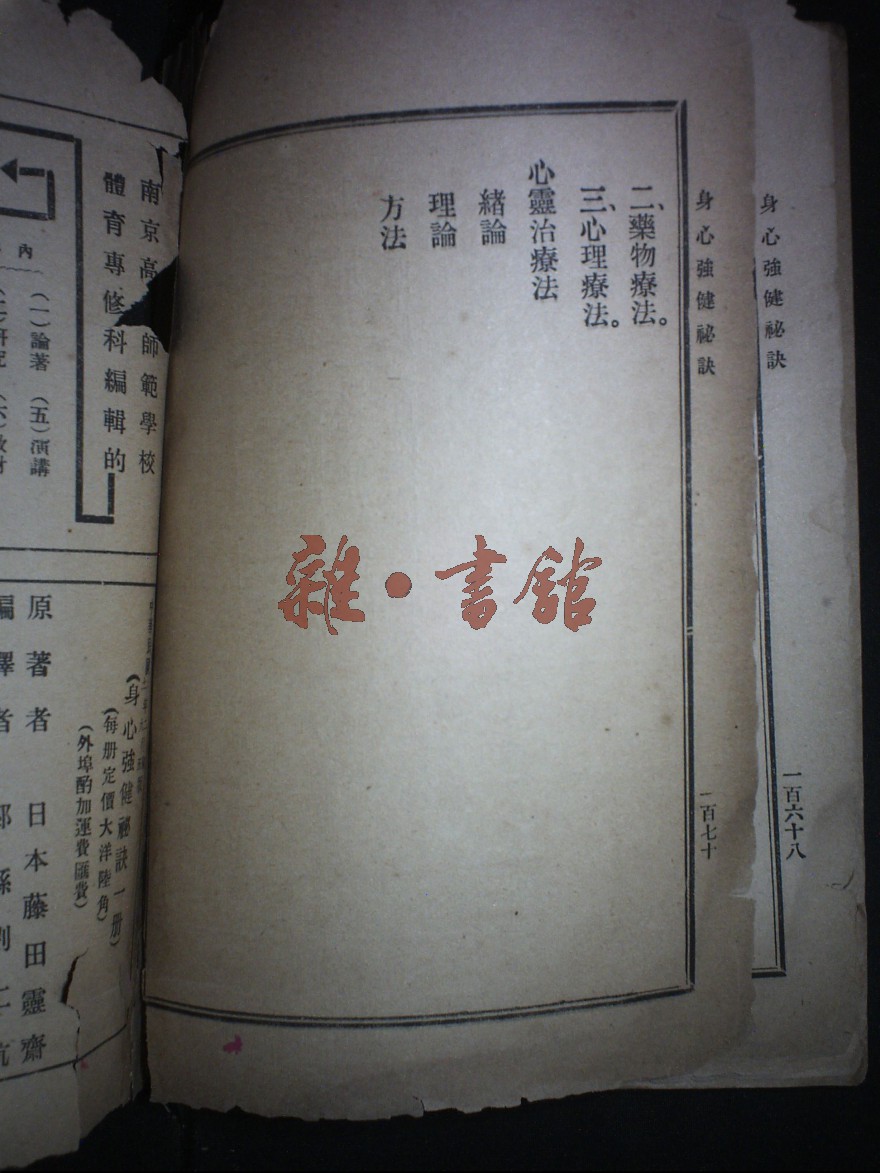 身心強健祕訣
一百六十八
身心強健祕訣
一百七十
二、藥物療法。
三、心理療法。
心靈治療法
緒論
理論
方法
雜·書館
南京高
師範學校
體育專修科編輯的
內
(一)論著 (五)演講
(身心強健祕訣一册)
(每册定價大洋陸角)
(外埠酌加運費匯費)
原著者 日本藤田靈齋
編譯者